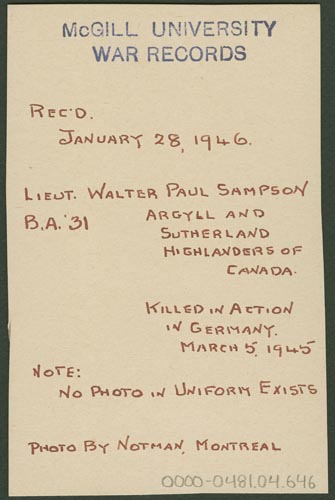 McGILL UNIVERSITY
WAR RECORDS
REC'D.
JANUARY 28, 1946.
LIEUT. WALTER PAUL SAMPSON
B.A. '31 ARGYLL AND
SUTHERLAND
HIGHLANDERS OF
CANADA.
KILLED IN ACTION
IN GERMANY.
MARCH 5, 1945
NOTE:
NO PHOTO IN UNIFORM EXISTS
PHOTO BY NOTMAN, MONTREAL
0000-0481.04.646